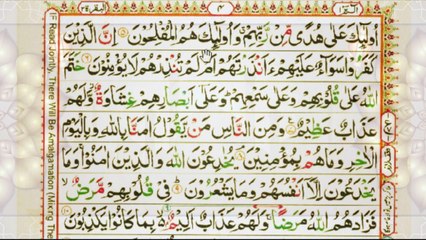 البقرة ٢
٤
الٓمّٓ ١
اُولٰٓئِكَ عَلٰى هُدًى مِّنْ رَّبِّهِمْ وَاُولٰٓئِكَ هُمُ الْمُفْلِحُوْنَ ۝٥ اِنَّ الَّذِيْنَ
كَفَرُوْا سَوَآءٌ عَلَيْهِمْ ءَاَنْذَرْتَهُمْ اَمْ لَمْ تُنْذِرْهُمْ لَا يُؤْمِنُوْنَ ۝٦ خَتَمَ
اللّٰهُ عَلٰى قُلُوْبِهِمْ وَعَلٰى سَمْعِهِمْ وَعَلٰٓى اَبْصَارِهِمْ غِشَاوَةٌ وَّلَهُمْ
عَذَابٌ عَظِيْمٌ ۝٧ وَمِنَ النَّاسِ مَنْ يَّقُوْلُ اٰمَنَّا بِاللّٰهِ وَبِالْيَوْمِ
الْاٰخِرِ وَمَا هُمْ بِمُؤْمِنِيْنَ ۝٨ يُخٰدِعُوْنَ اللّٰهَ وَالَّذِيْنَ اٰمَنُوْا وَمَا
يَخْدَعُوْنَ اِلَّآ اَنْفُسَهُمْ وَمَا يَشْعُرُوْنَ ۝٩ فِيْ قُلُوْبِهِمْ مَّرَضٌ
فَزَادَهُمُ اللّٰهُ مَرَضًا وَلَهُمْ عَذَابٌ اَلِيْمٌ بِمَا كَانُوْا يَكْذِبُوْنَ
IF Read Jointly, There Will Be Amalgamation (Mixing The